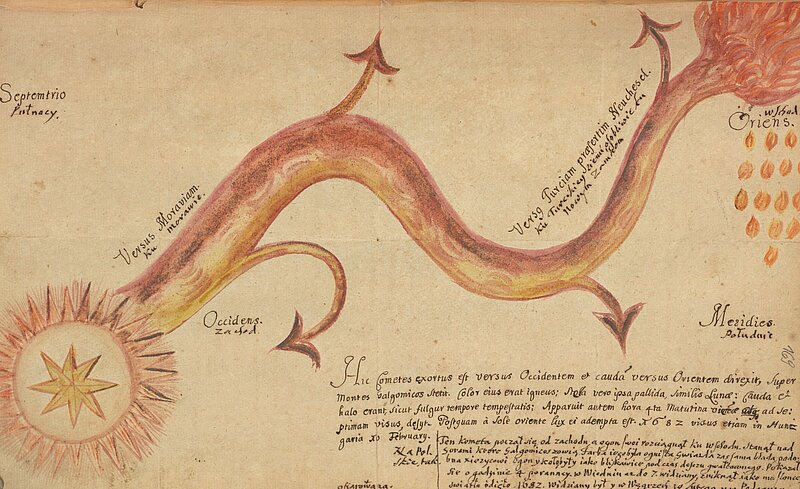 Septemtrio
Pułnocy.
Versus Moraviam.
ku morawie.
Versg Turciam præsertim Neuchesel.
ku Tureckiey ziemi osobliwie ku
Nowym Zamkom
wschod
Oriens.
Occidens.
zachod.
Meridies.
Południe.
169
Hic Cometes exortus est versus Occidentem et caudã versus Orientem direxit, super
Montes Galgomicos stetit. Color eius erat igneus; Stella vero ipsa pallida, similis Lunæ: Cauda et
halo erant, sicut fulgur tempore tempestatis; Apparuit autem hora 4ta Matutina ad se-
ptimam visus, Postquam à Sole oriente lux ei adempta est. 1682 visus etiam in Hun-
garia 10 February.
Na Pol-
skie tak.
Ten kometa począł się od zachodu, a ogon swoi rozciągnął ku wschodu. Stanął nad
Gorami ktore Galgomicos zowią. Farba iego była ognista Gwiazda zas sama blada podo-
bna xiężycowi: Ogon y okoł były iako błyskawice pod czas deszczu gwałtownego. Pokazał
się o godzinie 4 poranney. w Wiedniu aż do 7. widziany, zniknął iako mu słonce
swiatło odięło 1682. Widziany był y w Węgrzech